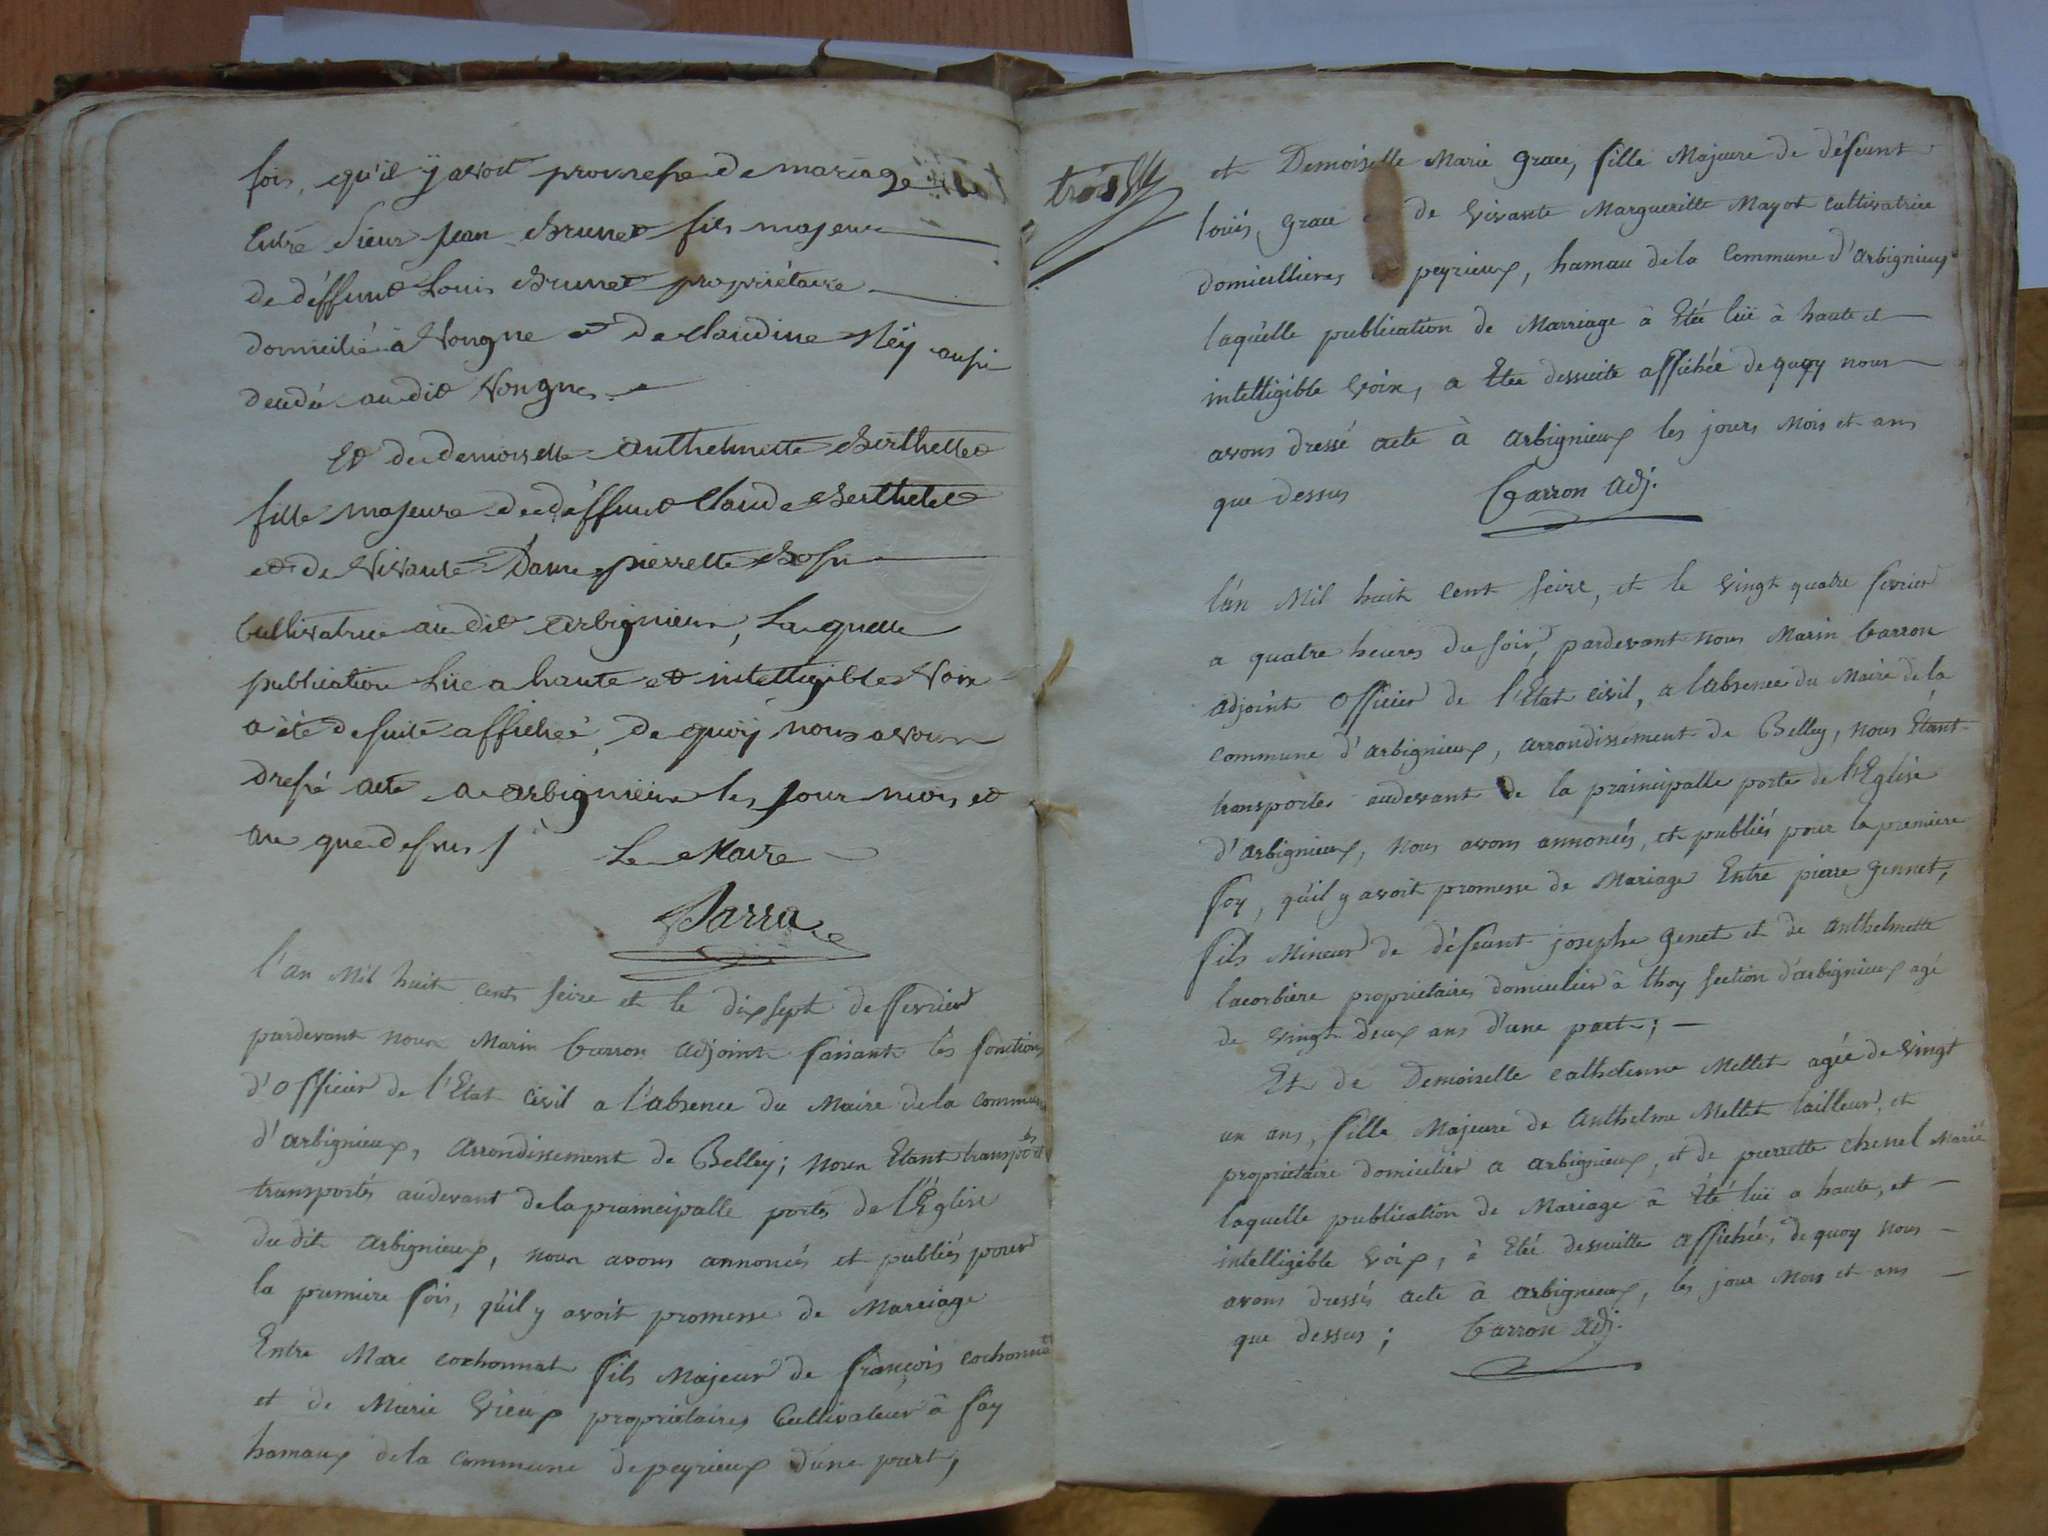 fois, qu'il ÿ avoit promesse de mariage
Entre Sieur Jean Brunet fils majeur
de déffunt Louis Brunet propriétaire
domicilié à Vongne et de Claudine Neÿ aussi
deudé au dit Vongnes
Et de demoiselle Anthelmette Berthellet
fille majeure de déffunt Claude Berthelet
et de Vivante Dame pierrette
Cultivatrice au dit arbignieux, Laquelle
publication Lüe a haute et intelligible Voix
a été desuite affichéé, de quoÿ nous avons
dressé acte a arbignieux les jour mois et
an que dessus /. Le Maire
Parra
l'an Mil huit cents seize et le dix sept de fevrier
pardevant nous Marin Carron adjoint faisant les fonctions
d'officier de l'Etat civil a l'absence du Maire de la commune
d'arbignieux, arrondissement de Belley; nous Etant
transportés audevant de la prainicipalle portes de l'Église
du dit arbignieux, nous avons annoncés et publiés pour
la premiere fois, qu'il y avoit promesse de Marriage
Entre Marc cochonnat fils Majeur de françois cochonnat
et de Marie Vieux proprietaires Cultivateur à fay
hamaux de la commune de peyrieux d'une part,
trois
et Demoiselle Marie grace, fille Majeure de défeunt
louis, grace et de vivante Margueritte Mayot cultivatrice
domicillieres peyrieux, hamau de la commune d'arbignieux
laquelle publication de Marriage à Eté lüe à haute et
intelligible voix, a Etée dessuite affichée de quoy nous
avons dressé acte à arbignieux les jours Mois et ans
que dessus Carron adj.
l'an Mil huit cent seize, et le vingt quatre fevrier
a quatre heures du soir, pardevant nous Marin Carron
adjoint officier de l'Etat civil, a l'absence du Maire de la
commune d'arbignieux, arrondissement de Belley, nous Etant
transportés audevant de la prainicipalle porte de l'Eglise
d'arbignieux, nous avons annonces, et publiés pour la premiere
foy, qu'il y avoit promesse de Mariage Entre pierre gennet,
fils Mineur de défeunt josephe genet et de anthelmette
lacorbiere proprietaires domicilier à thoy section d'arbignieux agé
de vingt deux ans d'une part; —
Et de Demoiselle catherinne Mellet agée de vingt
un ans, fille Majeure de anthelme Mellet tailleur, et
proprietaire domicilier a arbignieux, et de pierrette chenel Marié
laquelle publication de Mariage à Eté lüe a haute, et —
intelligible voix, à Etée dessuitte affichée, de quoy nous —
avons dressés acte à arbignieux, les jour Mois et ans —
que dessus; Carron adj.